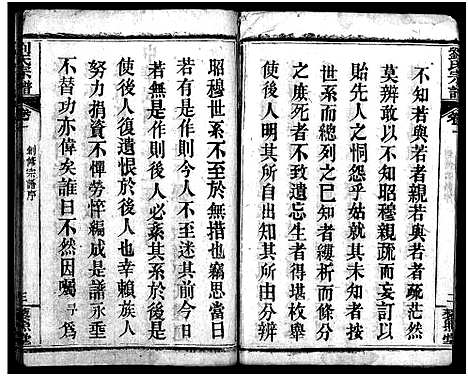 劉氏宗譜
卷一
不知若與若者親若與若者疏茫然
莫辨敢以不知昭穆親疏而妄擬以
貽先人之恫怨乎姑就其未知者按
世系而總列之已知者縷析而條分
之庶死者不致遺忘生者得堪枚舉
使後人開明其所自出知其所分辨
二
藜照堂
昭穆世系於無措也竊思當日
若有是作則今人不至迷其前今日
若無是作則後人必紊其系於
使後人復遺恨於後也幸賴族人
努力捐貲不憚勞悴編成是譜永垂
不替功亦偉矣誰曰不然因囑予為
劉氏宗譜
卷一
創修宗譜序
三
藜照堂